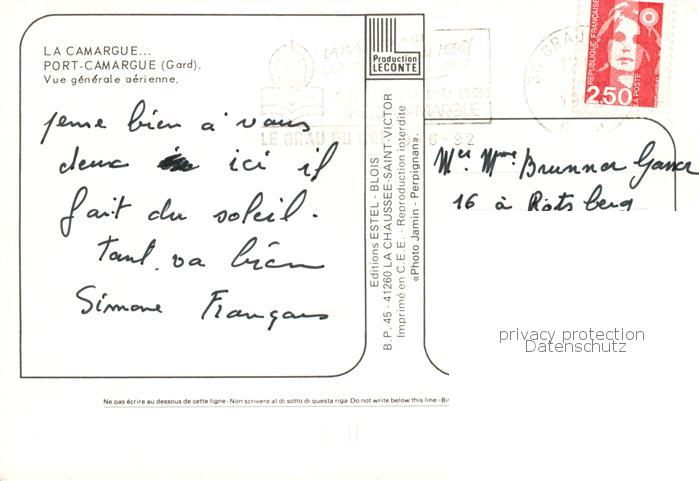 LA CAMARGUE...
PORT-CAMARGUE (Gard).
Vue générale aérienne.
pense bien à vous
deux ici il
fait du soleil.
tout va bien
Simone François
Production
LECONTE
Editions ESTEL - BLOIS
B.P. 45 - 41260 LA CHAUSSEE-SAINT-VICTOR
Imprimé en C.E.E. - Reproduction interdite
«Photo Jamin - Perpignan».
LE GRAU DU ROI
6-92
30 GRAU
REPUBLIQUE FRANÇAISE
2,50
LA POSTE
Mer Mme Brunner Gasser
16 à Rötsberg
privacy protection
Datenschutz
Ne pas écrire au dessous de cette ligne - Non scrivere al di sotto di questa riga - Do not write below this line - Bi